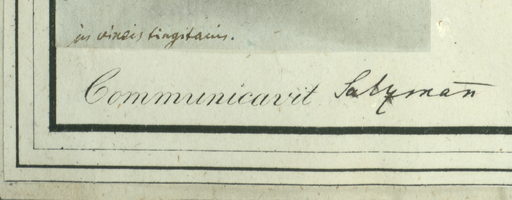 in vineis tingitanis.
Communicavit Salzmañ